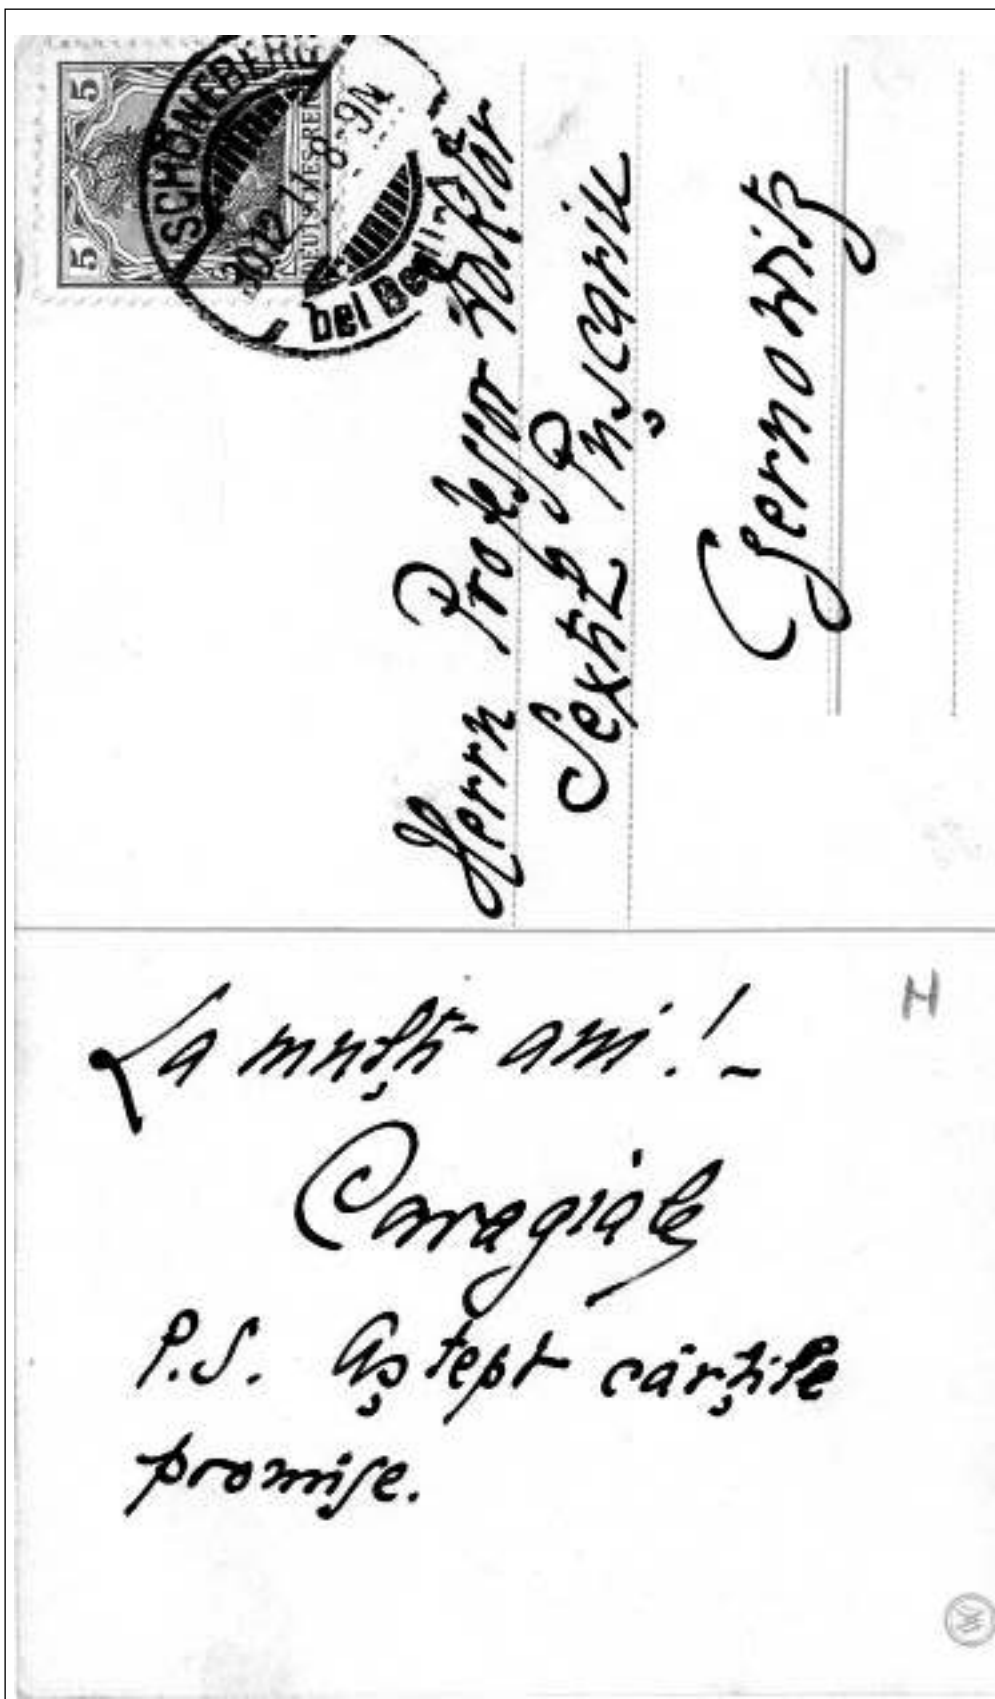 5 5
DEUTSCHES REI
SCHÖNEBERG
30.12.11. 8-9N.
bei Berlin
Herrn Professor Doktor
Sextil Pușcariu
Czernowitz
H
La mulți ani! -
Caragiale
P.S. Aștept cărțile
promise.